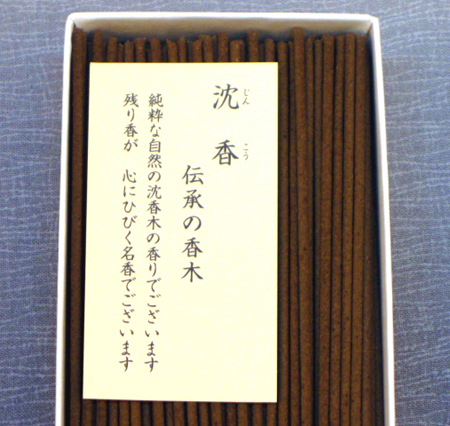 沈香
じんこう
伝承の香木
純粋な自然の沈香木の香りでございます
残り香が 心にひびく名香でございます